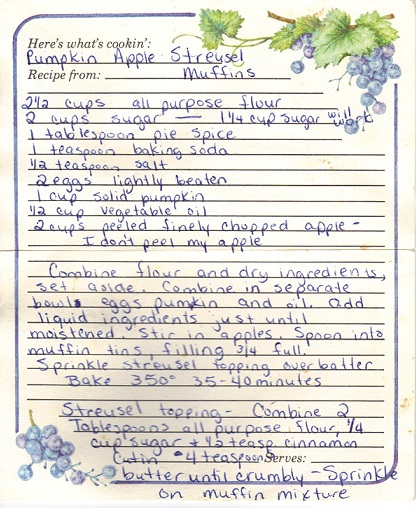 Here's what's cookin':
Pumpkin Apple Streusel
Recipe from: Muffins
2 1/2 cups all purpose flour
2 cups sugar — 1 1/4 cup sugar will work
1 tablespoon pie spice
1 teaspoon baking soda
1/2 teaspoon salt
2 eggs lightly beaten
1 cup solid pumpkin
1/2 cup vegetable oil
2 cups peeled finely chopped apple -
I don't peel my apple
Combine flour and dry ingredients,
set aside. Combine in separate
bowls eggs pumpkin and oil. Add
liquid ingredients just until
moistened. Stir in apples. Spoon into
muffin tins, filling 3/4 full.
Sprinkle streusel topping over batter
Bake 350° 35-40 minutes
Streusel topping - Combine 2
Tablespoons all purpose flour, 1/4
cup sugar + 1/2 teasp. cinnamon
Cut in 4 teaspoon Serves:
butter until crumbly - Sprinkle
on muffin mixture